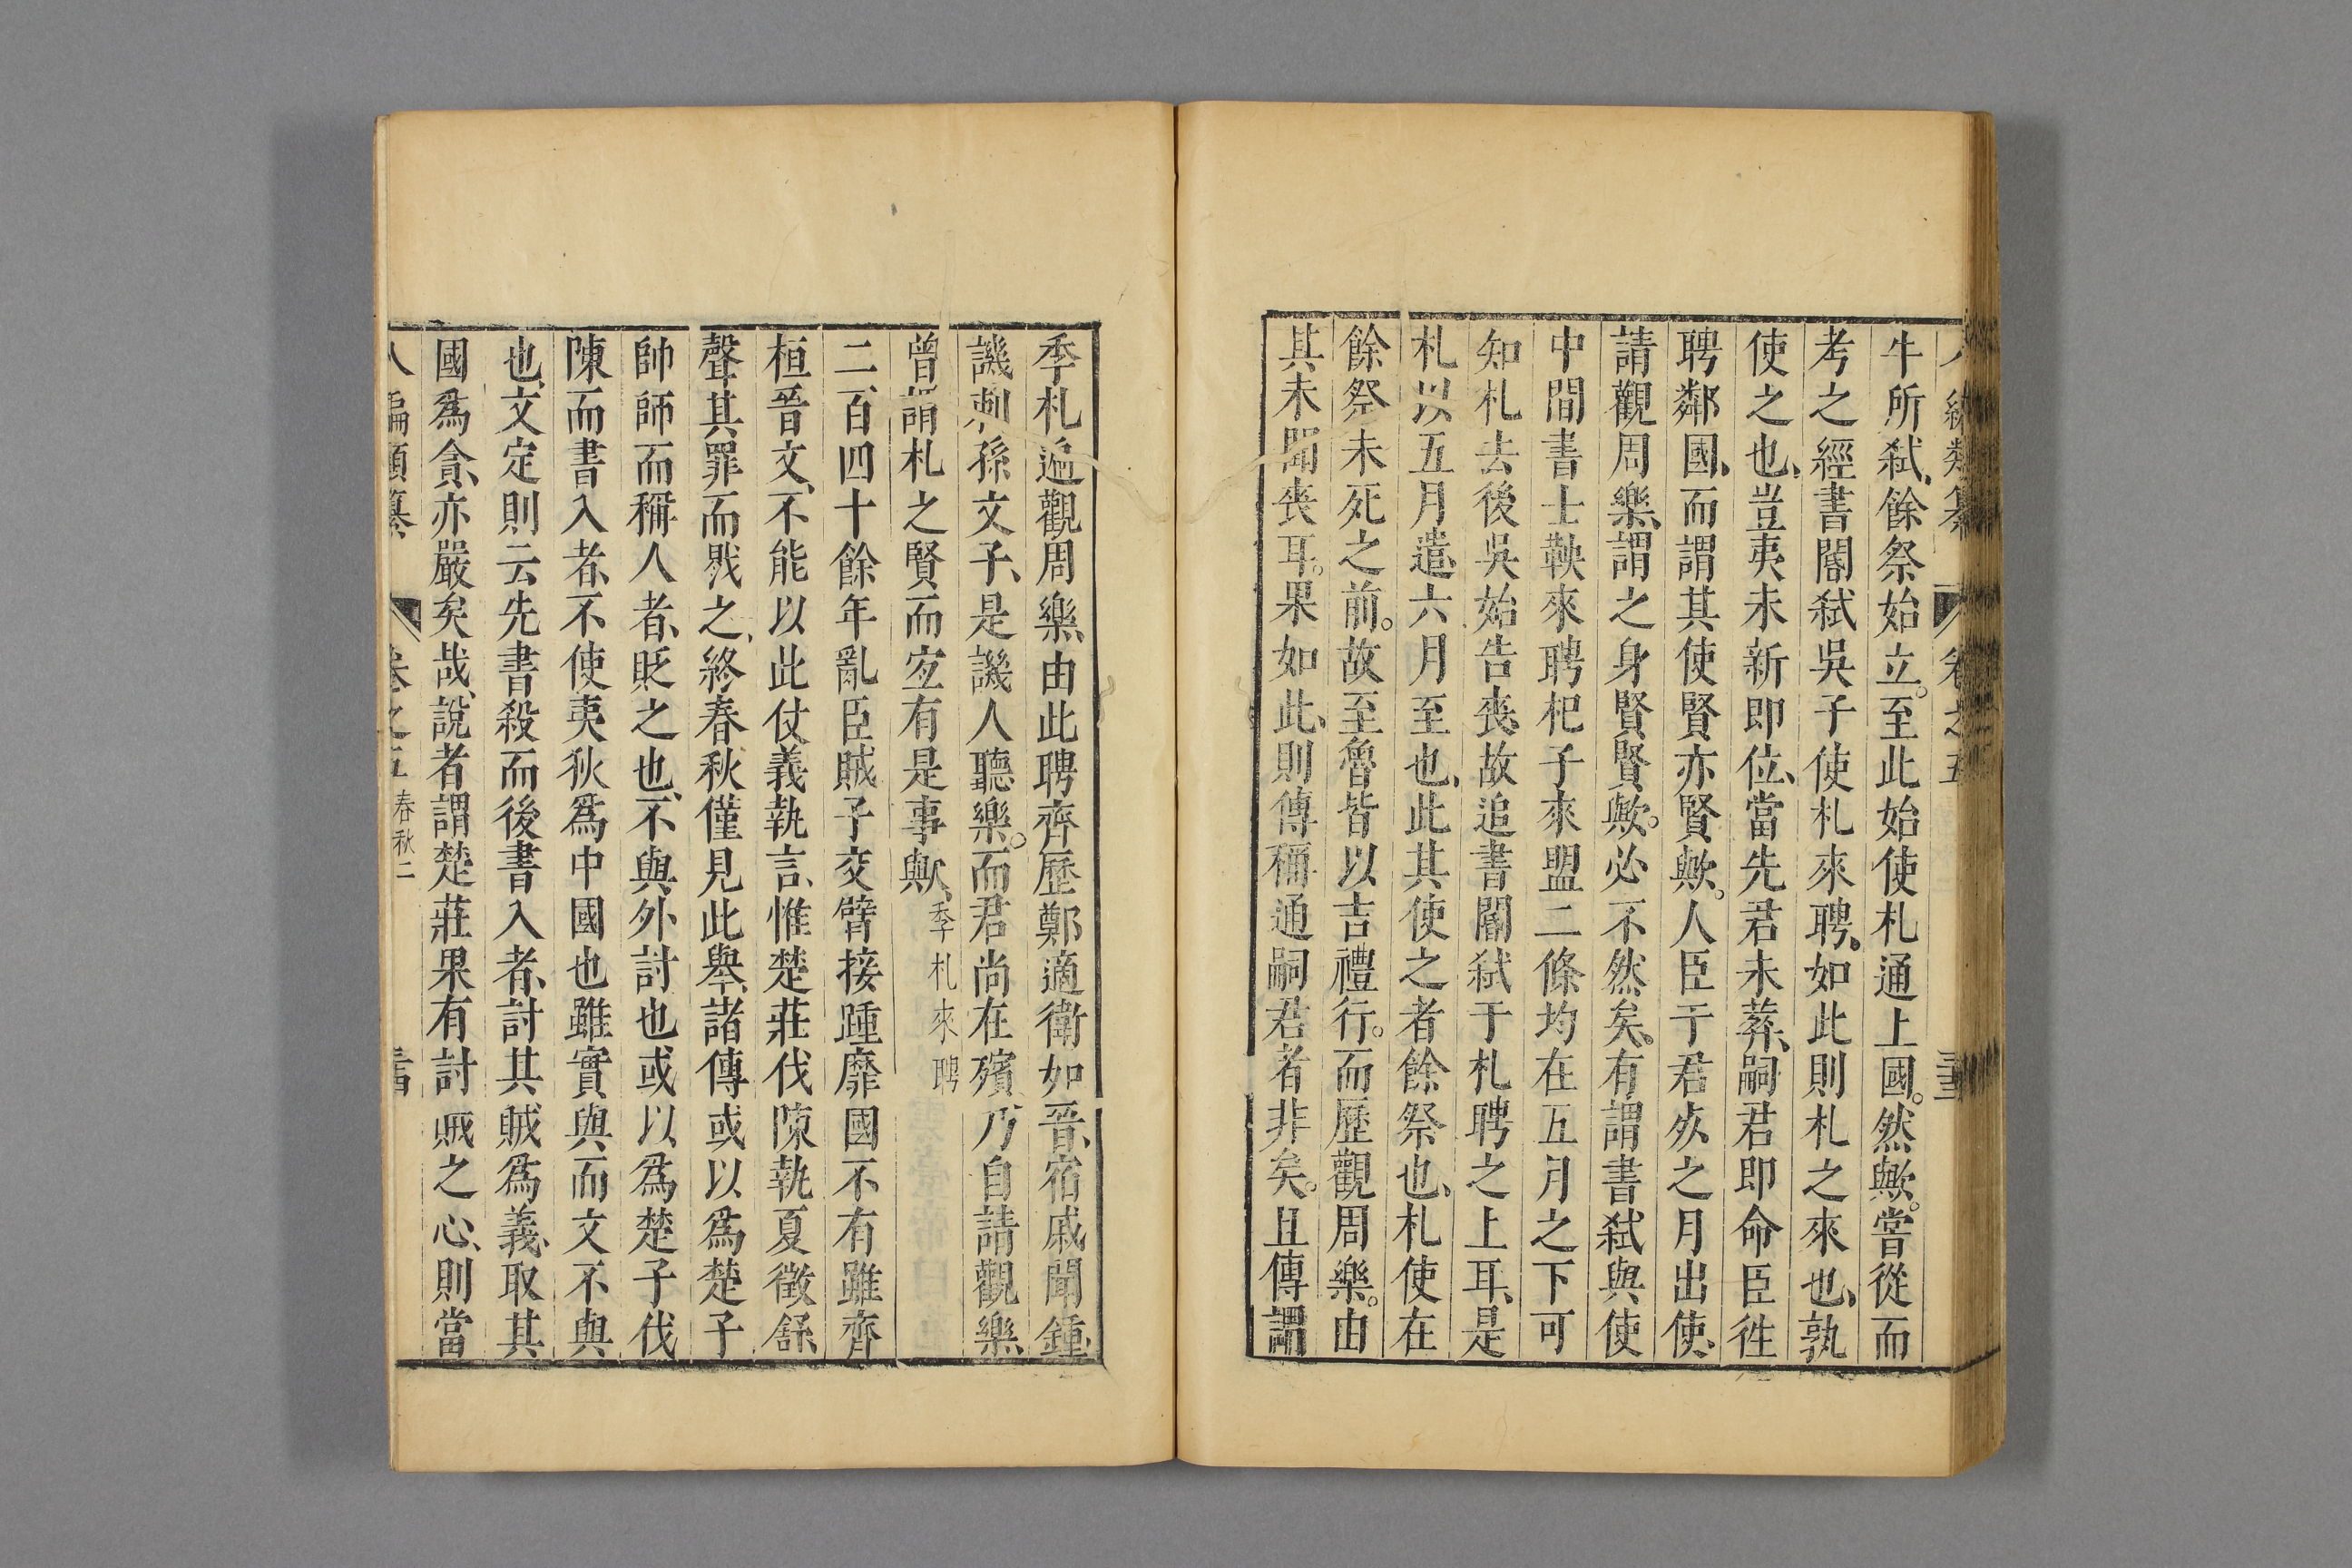 牛所弑、餘祭始立。至此始使札通上國。然歟。當從而
考之經書閽弑吳子使札來聘。如此則札之來也、孰
使之也、豈夷未新即位、當先君未葬、嗣君即命臣徃
聘鄰國、而謂其使賢亦賢歟。人臣于君歿之月出使、
請觀周樂、謂之身賢賢歟。必不然矣。有謂書弑與使
中間書士鞅來聘杞子來盟二條均在五月之下可
知札去後吳始告喪、故追書閽弑于札聘之上耳、是
札以五月遣六月至也、此其使之者餘祭也、札使在
餘祭未死之前。故至魯皆以吉禮行。而歷觀周樂。由
其未聞喪耳。果如此、則傳稱通嗣君者非矣。且傳謂
季札遍觀周樂、由此聘齊歷鄭適衛如晉、宿戚聞鍾、
譏刺孫文子、是譏人聽樂。而君尚在殯乃自請觀樂、
曾謂札之賢而宐有是事歟、季札來聘
二百四十餘年亂臣賊子交臂接踵靡國不有雖齊
桓晉文、不能以此仗義執言、惟楚莊伐陳執夏徵舒、
聲其罪而戮之、終春秋僅見此舉、諸傳或以爲楚子
帥師而稱人者、貶之也、不與外討也或以爲楚子伐
陳而書入者、不使夷狄爲中國也雖實與而文不與
也、文定則云先書殺而後書入者、討其賊爲義、取其
國爲貪、亦嚴矣哉、說者謂楚莊果有討賊之心、則當
卷之五 春秋二